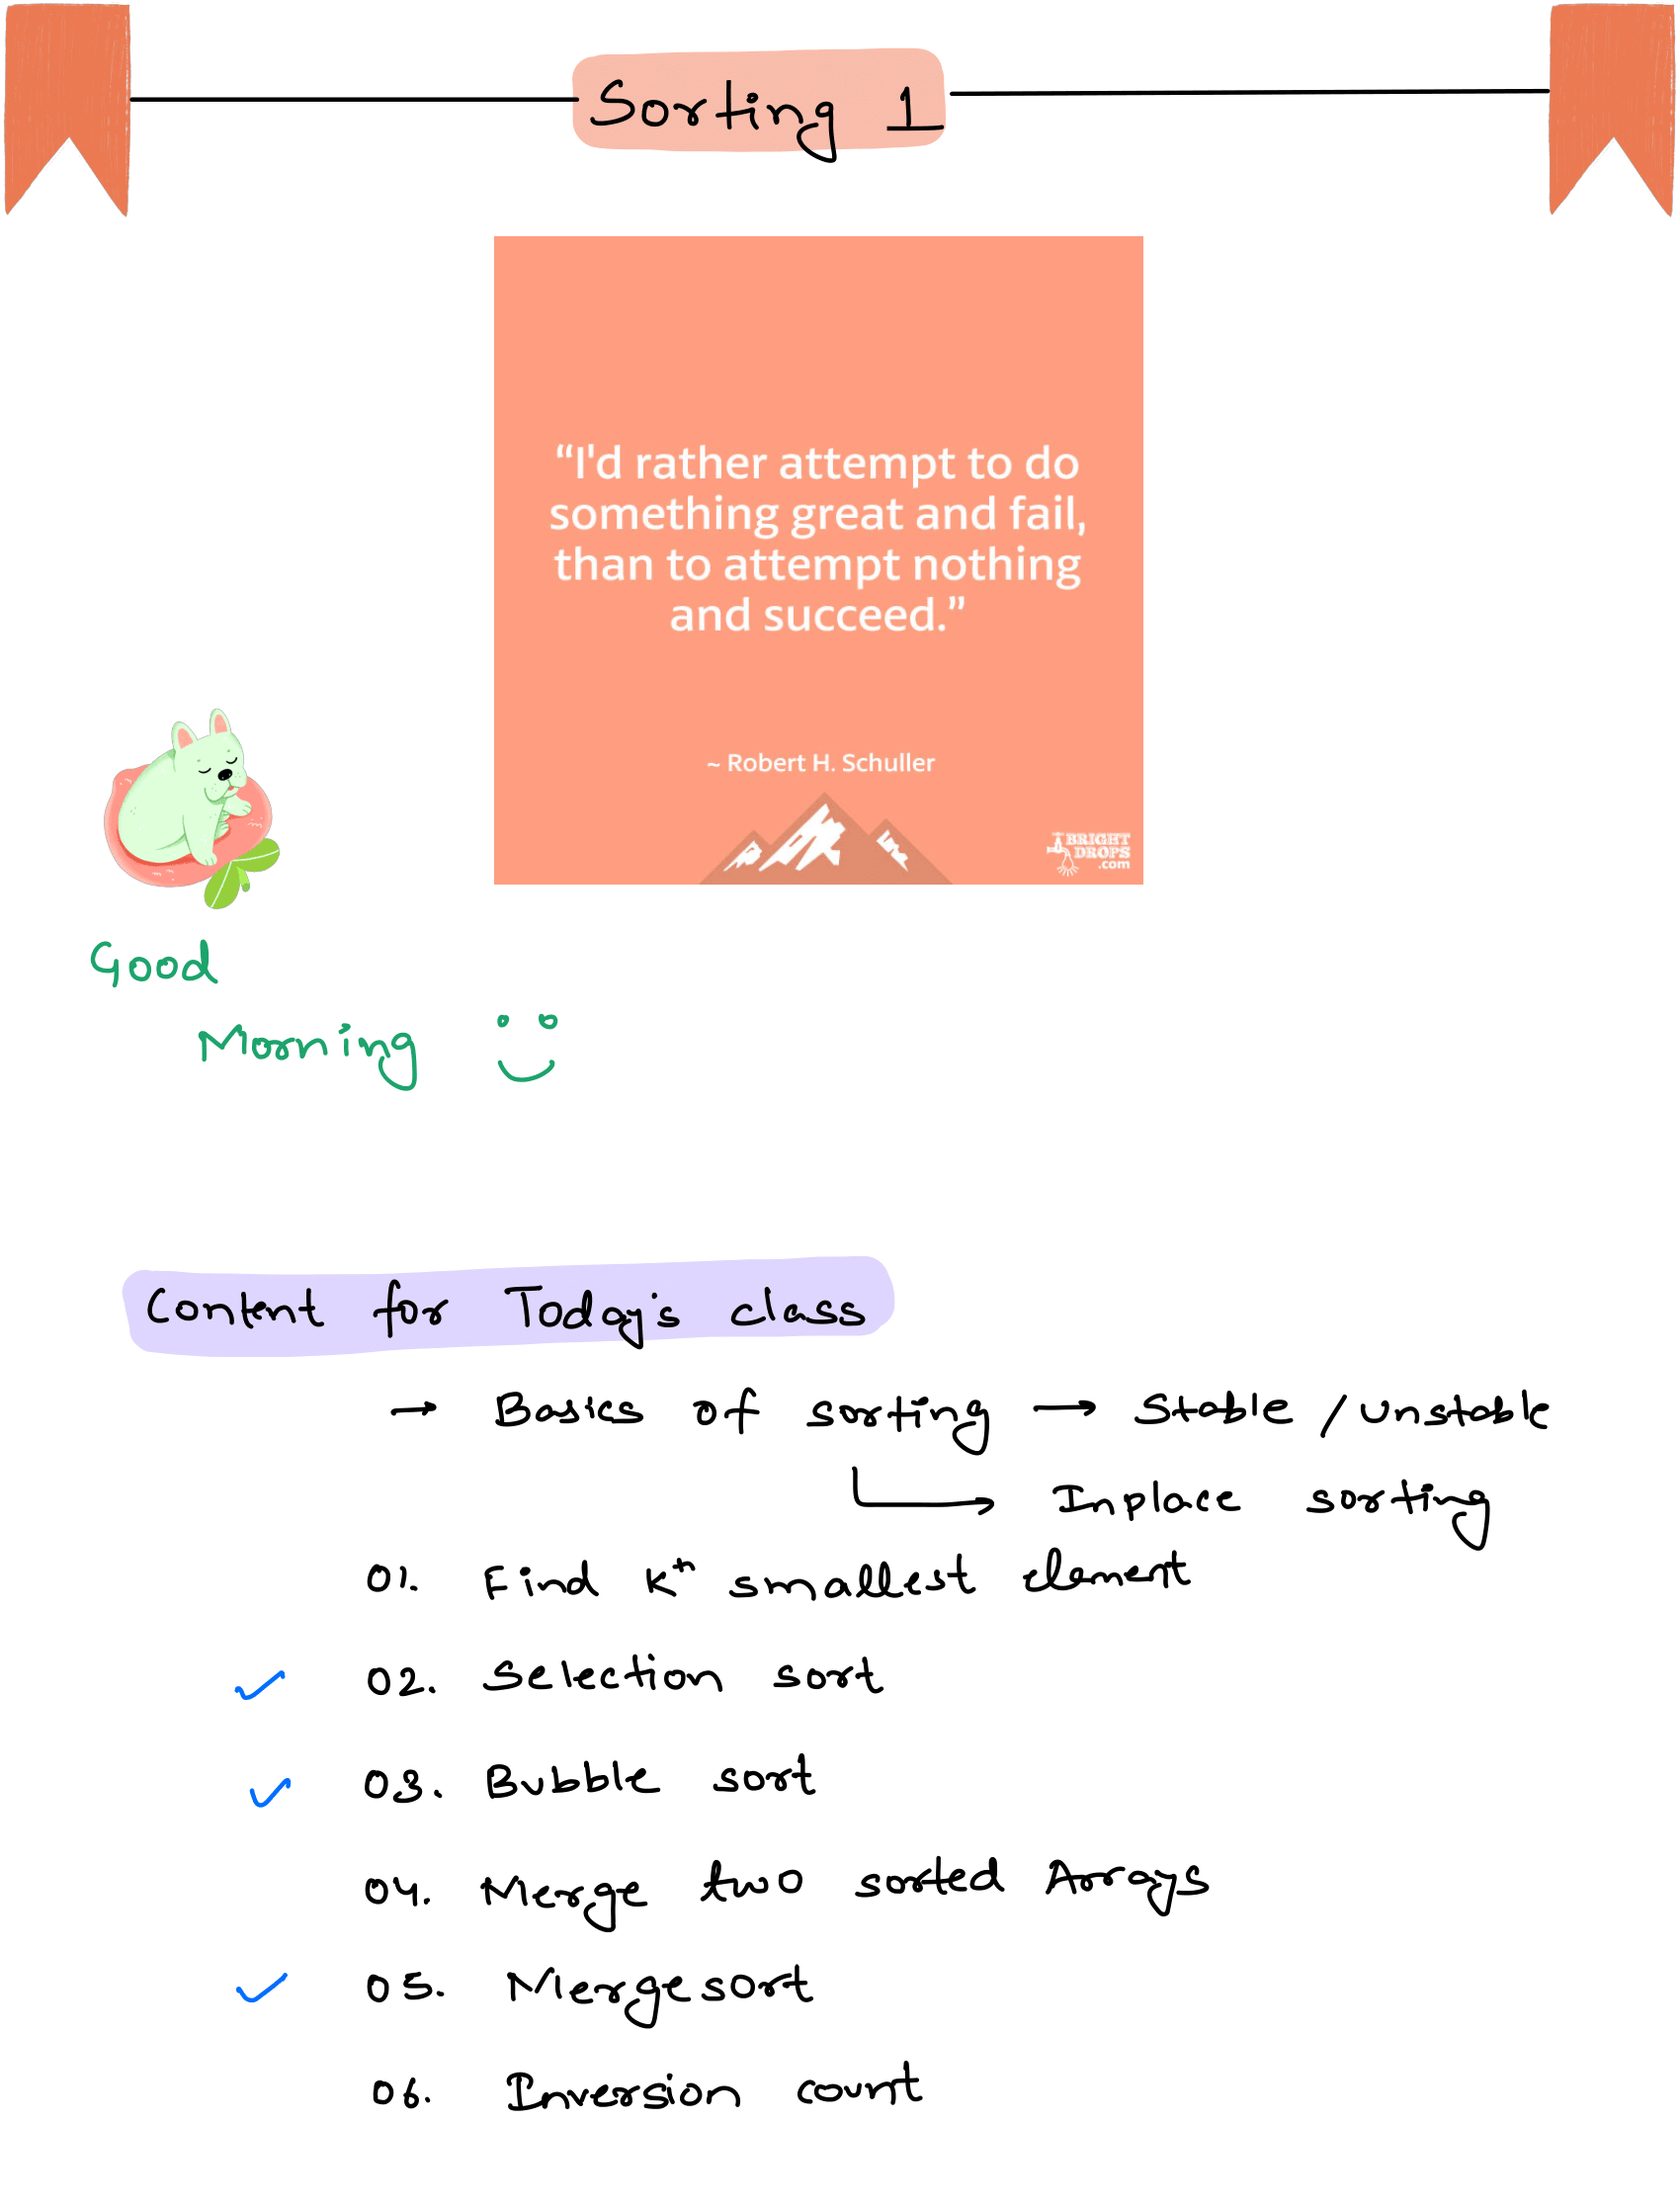 Sorting 1
“I'd rather attempt to do
something great and fail,
than to attempt nothing
and succeed.”
~ Robert H. Schuller
BRIGHT
DROPS
.com
Good
Morning
Content for Today's class
→ Basics of sorting → Stable / Unstable
→ Inplace sorting
01. Find Kth smallest element
02. Selection sort
03. Bubble sort
04. Merge two sorted Arrays
05. Mergesort
06. Inversion count